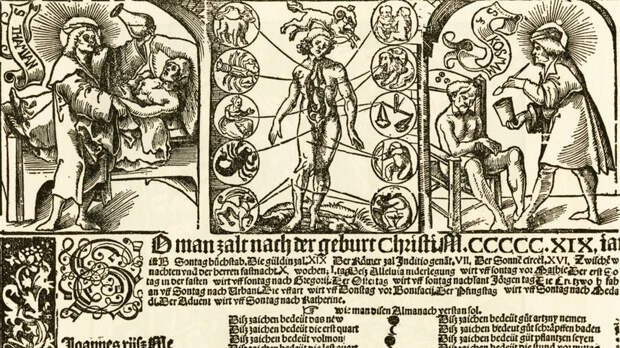 S
DAMIAN
S
COSMAS
O man zalt nach der geburt Christi M.CCCCC.XIX, iar
B Sontag bůchstab, Die guldin zal XIX Der Römer zal Indictio genāt, VII. Der Sonne circel, XVI, Zwischē w
nachten vnd der herren fastnacht X, wochen, I, tag Das Alleluia niderlegung wirt vff sontag vor Der erst So
tag in der fasten wirt vff sontag nach Gregorii, Der Ostertag wirt vff sontag Jörgen tag
an vff Sontag nach Vrbani, Die vffart wirt vff Donstag vor Bonifacii, Der Pfingstag wirt vff Sontag nach Meda
di, Der Aduent wirt vff Sontag nach Katherine.
wie man disen Almanach verstan sol.
Diß zaichen bedeüt das new
Diß zaichen bedeüt gůt artzny nemen
Diß zaichen bedeüt die erst quart
Diß zaichen bedeüt gůt schräpffen baden
Diß zaichen bedeüt volmon
Diß zaichen bedeüt gůt pflantzen seyen
Joannes
Diß zaichen bedeüt die quart
Diß zaichen bedeüt die stund